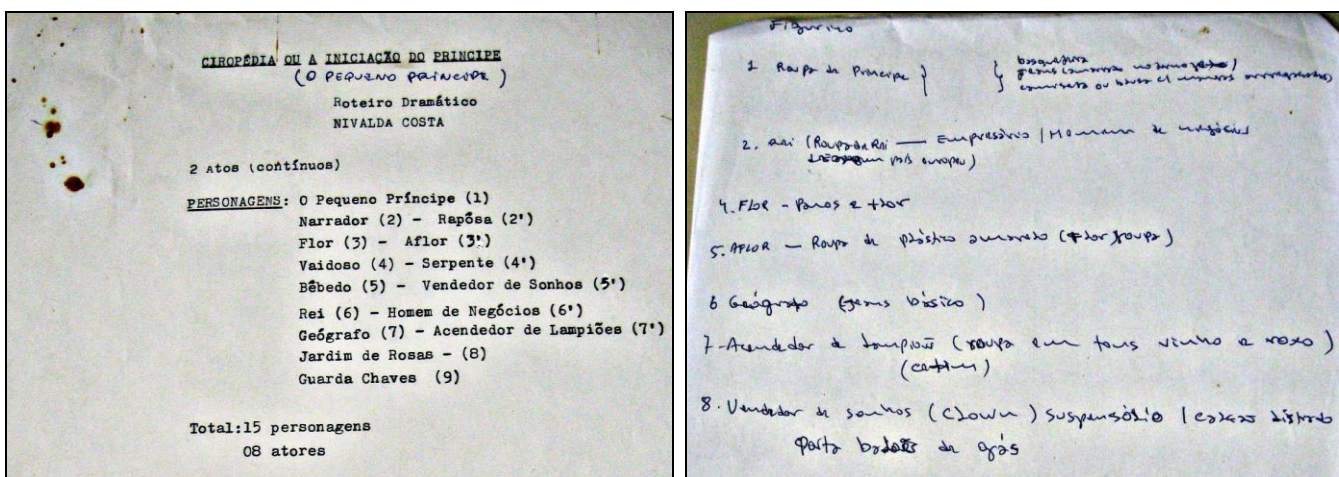 CIROPÉDIA OU A INICIAÇÃO DO PRINCIPE
(O PEQUENO PRÍNCIPE)
Roteiro Dramático
NIVALDA COSTA
2 Atos (contínuos)
PERSONAGENS: O Pequeno Príncipe (1)
Narrador (2) - Rapôsa (2')
Flor (3) - Aflor (3')
Vaidoso (4) - Serpente (4')
Bêbedo (5) - Vendedor de Sonhos (5')
Rei (6) - Homem de Negócios (6')
Geógrafo (7) - Acendedor de Lampiões (7')
Jardim de Rosas - (8)
Guarda Chaves (9)
Total:15 personagens
08 atores
Figurino
1 Roupa de Principe } {
camiseta ou
2. Rei (Roupa de Rei — Empresário / Homem de negócios
país europeu)
4. FLOR - Panos e flor
5. AFLOR — Roupa de plástico amarelo (flor/roupa)
6 Geógrafo (jeans básico)
7-Acendedor de lampiões (roupa em tons vinho e roxo)
(cetim)
8. Vendedor de sonhos (Clown) suspensório /
Porta balões de gás